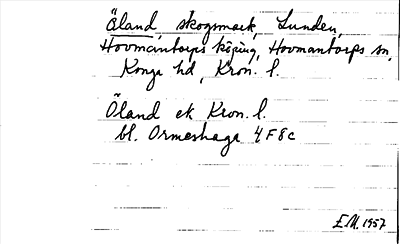 Öland, skogsmark, Lunden,
Hovmantorps köping, Hovmantorps sn,
Konga hd, Kron. l.
Öland ek Kron. l.
bl. Ormeshaga 4F8c
E.M. 1957